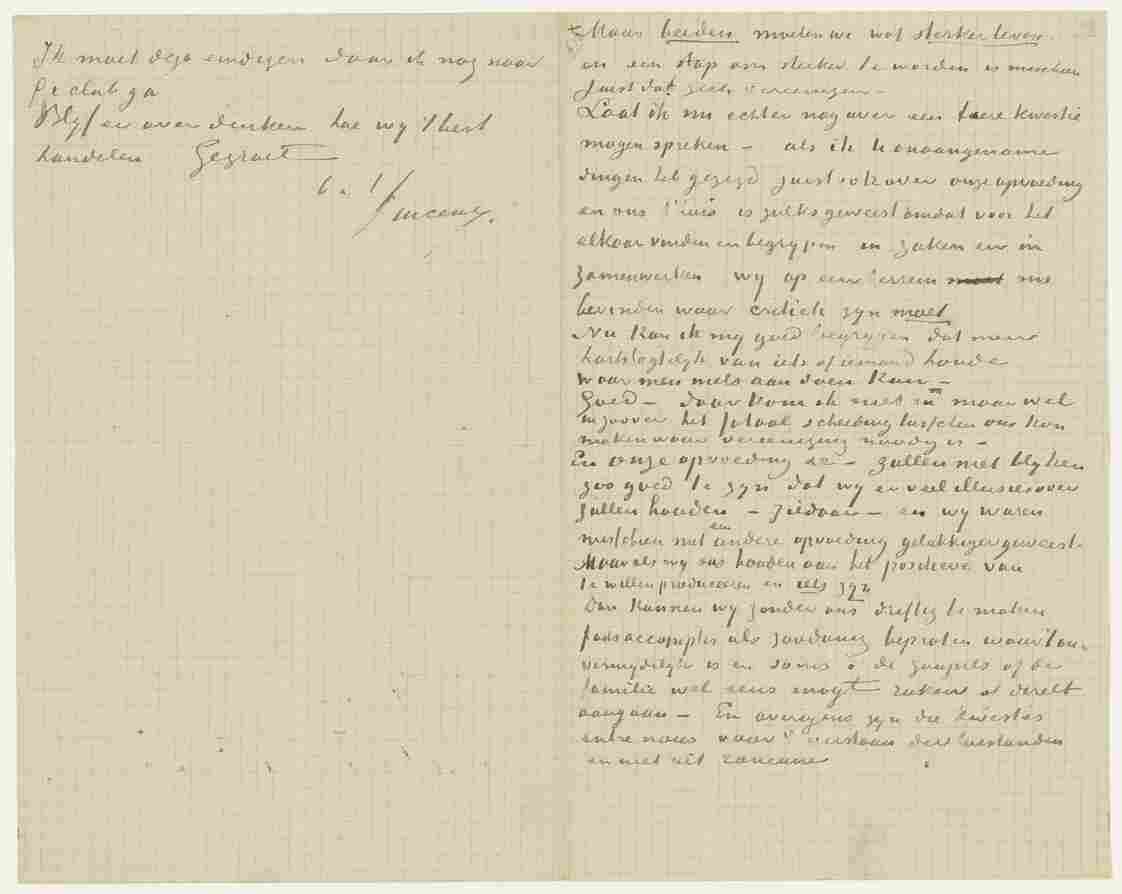 Ik moet deze eindigen daar ik nog naar
de club ga
Blijf er over denken hoe wij 't best
handelen Gegroet
b. à t.
Vincent.
Maar beiden moeten we wat sterker leven.
en een stap om sterker te worden is misschien
juist dat zich vereenigen –
Laat ik nu echter nog over een teere kwestie
mogen spreken – als ik U onaangename
dingen heb gezegd juist ook over onze opvoeding
en ons t'huis is zulks geweest omdat voor het
elkaar vinden en begrypen in zaken en in
zamenwerken wy op een terrein ons
bevinden waar critiek zyn moet
Nu kan ik my goed begrypen dat men
hartstogtelyk van iets of iemand houde
waar men niets aan doen kan –
Goed – daar kom ik niet in maar wel
in zoover het fataal scheiding tusschen ons kon
maken waar vereeniging noodig is –
En onze opvoeding &c – zullen niet blyken
zoo goed te zyn dat wy er veel illusies over
zullen houden – ziedaar – en wy waren
misschien met een andere opvoeding gelukkiger geweest.
Maar als wy ons houden aan het positieve van
te willen produceeren en iets zyn
Dan kunnen wy zonder ons driftig te maken
faits accomplis als zoodanig bepraten waar 't on-
vermydelyk is en soms de Goupils of de
familie wel eens mogt raken of direkt
aangaan – En overigens zyn die kwesties
entre nous voor 't verstaan der toestanden
en niet uit rancune